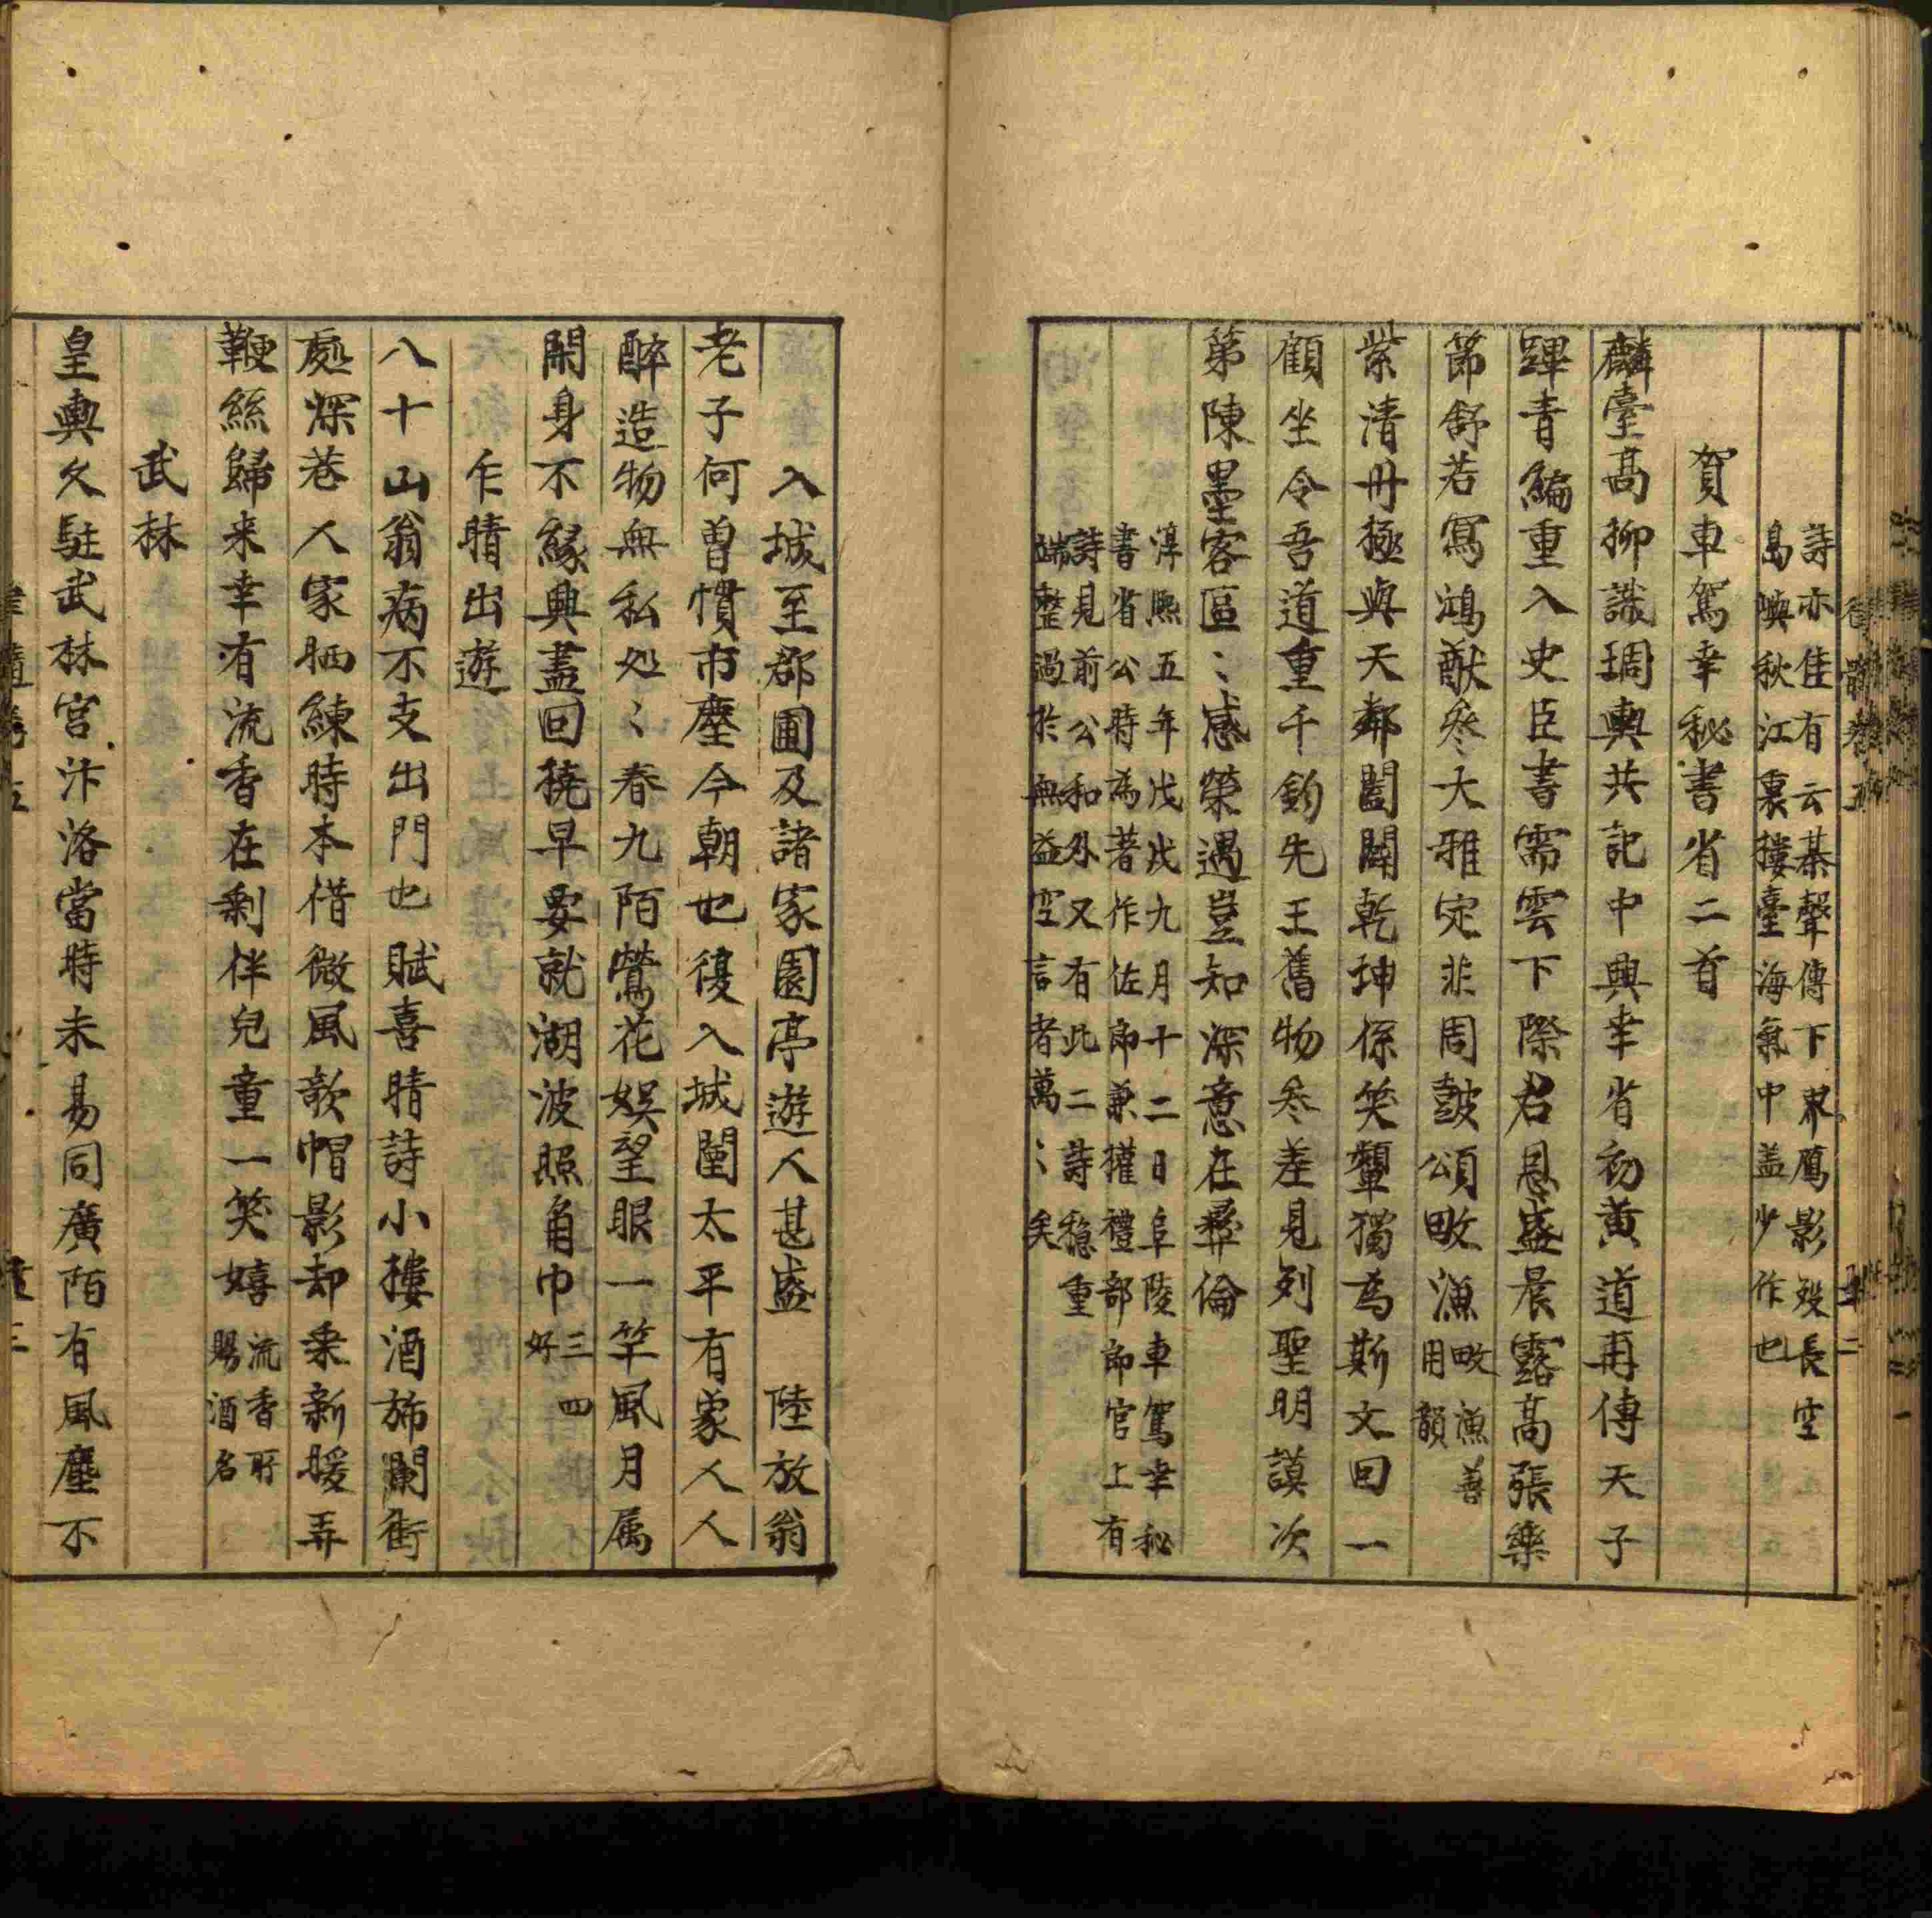 詩亦佳有云棊聲傳下界鴈影歿長空
島嶼秋江裏摟臺海氣中盖少作也
賀車駕幸秘書省二首
麟臺髙抑識琱輿共記中興幸省初黄道再傳天子
蹕青編重入史臣書需雲下際君恩盛晨露髙張樂
節舒若寫鴻猷叅大雅定非周皷頌畋漁
畋漁善
用韻
紫清册極與天鄰闔闢乾坤係笑顰獨為斯文回一
顧坐令吾道重千鈞先王舊物叅差見列聖明謨次
第陳墨客區〻感榮遇豈知深意在彛倫
淳熈五年戊戌九月十二日阜陵車駕幸秘
書省公時為著作佐郎兼權禮部郎官上有
詩見前公和外又有此二詩穏重
端整過於無益空言者萬〻矣
入城至郡圃及諸家園亭遊人甚盛 陸放翁
老子何曽慣市塵今朝也復入城闉太平有象人人
醉造物無私処〻春九陌鶯花娱望眼一竿風月属
閑身不縁興盡回橈早要就湖波照角巾
三四
好
乍晴出遊
八十山翁病不支出門也賦喜晴詩小摟酒斾闌街
處深巷人家晒練時本借微風欹帽影却乗新暖弄
鞭絲歸来幸有流香在剰伴兒童一笑嬉
流香所
賜酒名
武林
皇輿久駐武林宫汴洛當時未易同廣陌有風塵不